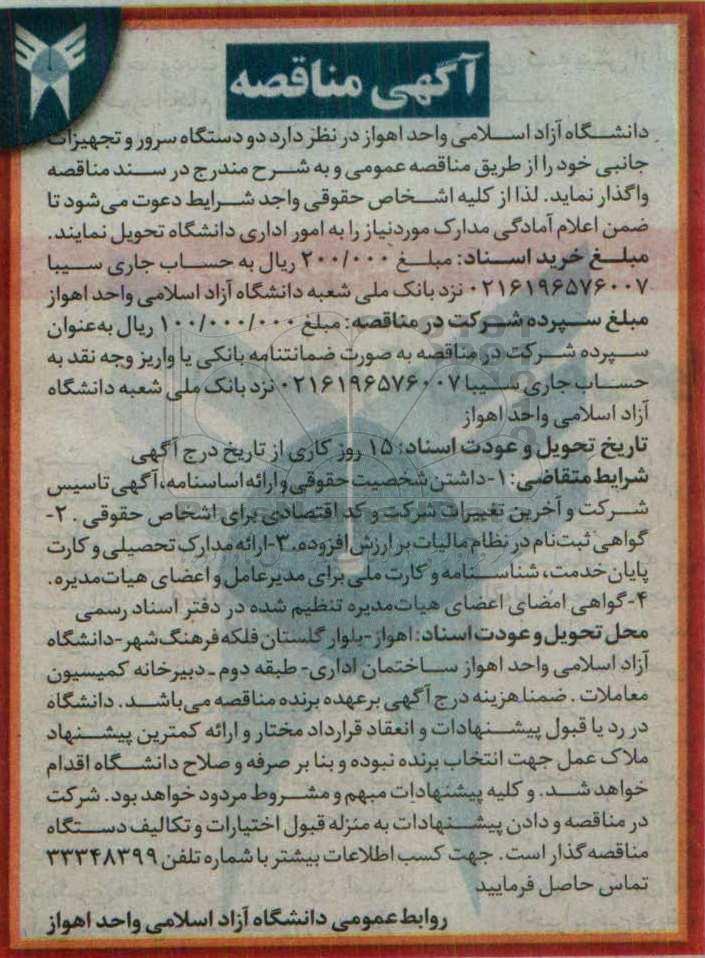 آگهی مناقصه
دانشگاه آزاد اسلامی واحد اهواز در نظر دارد دو دستگاه سرور و تجهیزات
جانبی خود را از طریق مناقصه عمومی و به شرح مندرج در سند مناقصه
واگذار نماید. لذا از کلیه اشخاص حقوقی واجد شرایط دعوت می‌شود تا
ضمن اعلام آمادگی مدارک موردنیاز را به امور اداری دانشگاه تحویل نمایند.
مبلغ خرید اسناد: مبلغ ۲۰۰/۰۰۰ ریال به حساب جاری سیبا
۰۲۱۶۱۹۶۵۷۶۰۰۷ نزد بانک ملی شعبه دانشگاه آزاد اسلامی واحد اهواز
مبلغ سپرده شرکت در مناقصه: مبلغ ۱۰۰/۰۰۰/۰۰۰ ریال به‌عنوان
سپرده شرکت در مناقصه به صورت ضمانتنامه بانکی یا واریز وجه نقد به
حساب جاری سیبا ۰۲۱۶۱۹۶۵۷۶۰۰۷ نزد بانک ملی شعبه دانشگاه
آزاد اسلامی واحد اهواز
تاریخ تحویل و عودت اسناد: ۱۵ روز کاری از تاریخ درج آگهی
شرایط متقاضی: ۱-داشتن شخصیت حقوقی و ارائه اساسنامه، آگهی تاسیس
شرکت و آخرین تغییرات شرکت و کد اقتصادی برای اشخاص حقوقی . ۲-
گواهی ثبت‌نام در نظام مالیات بر ارزش افزوده. ۳-ارائه مدارک تحصیلی و کارت
پایان خدمت، شناسنامه و کارت ملی برای مدیرعامل و اعضای هیات‌مدیره.
۴-گواهی امضای اعضای هیات‌مدیره تنظیم شده در دفتر اسناد رسمی
محل تحویل و عودت اسناد: اهواز-بلوار گلستان فلکه فرهنگ شهر-دانشگاه
آزاد اسلامی واحد اهواز ساختمان اداری- طبقه دوم - دبیرخانه کمیسیون
معاملات . ضمنا هزینه درج آگهی برعهده برنده مناقصه می‌باشد. دانشگاه
در رد یا قبول پیشنهادات و انعقاد قرارداد مختار و ارائه کمترین پیشنهاد
ملاک عمل جهت انتخاب برنده نبوده و بنا بر صرفه و صلاح دانشگاه اقدام
خواهد شد. و کلیه پیشنهادات مبهم و مشروط مردود خواهد بود. شرکت
در مناقصه و دادن پیشنهادات به منزله قبول اختیارات و تکالیف دستگاه
مناقصه‌گذار است. جهت کسب اطلاعات بیشتر با شماره تلفن ۳۳۳۴۸۳۹۹
تماس حاصل فرمایید
روابط عمومی دانشگاه آزاد اسلامی واحد اهواز